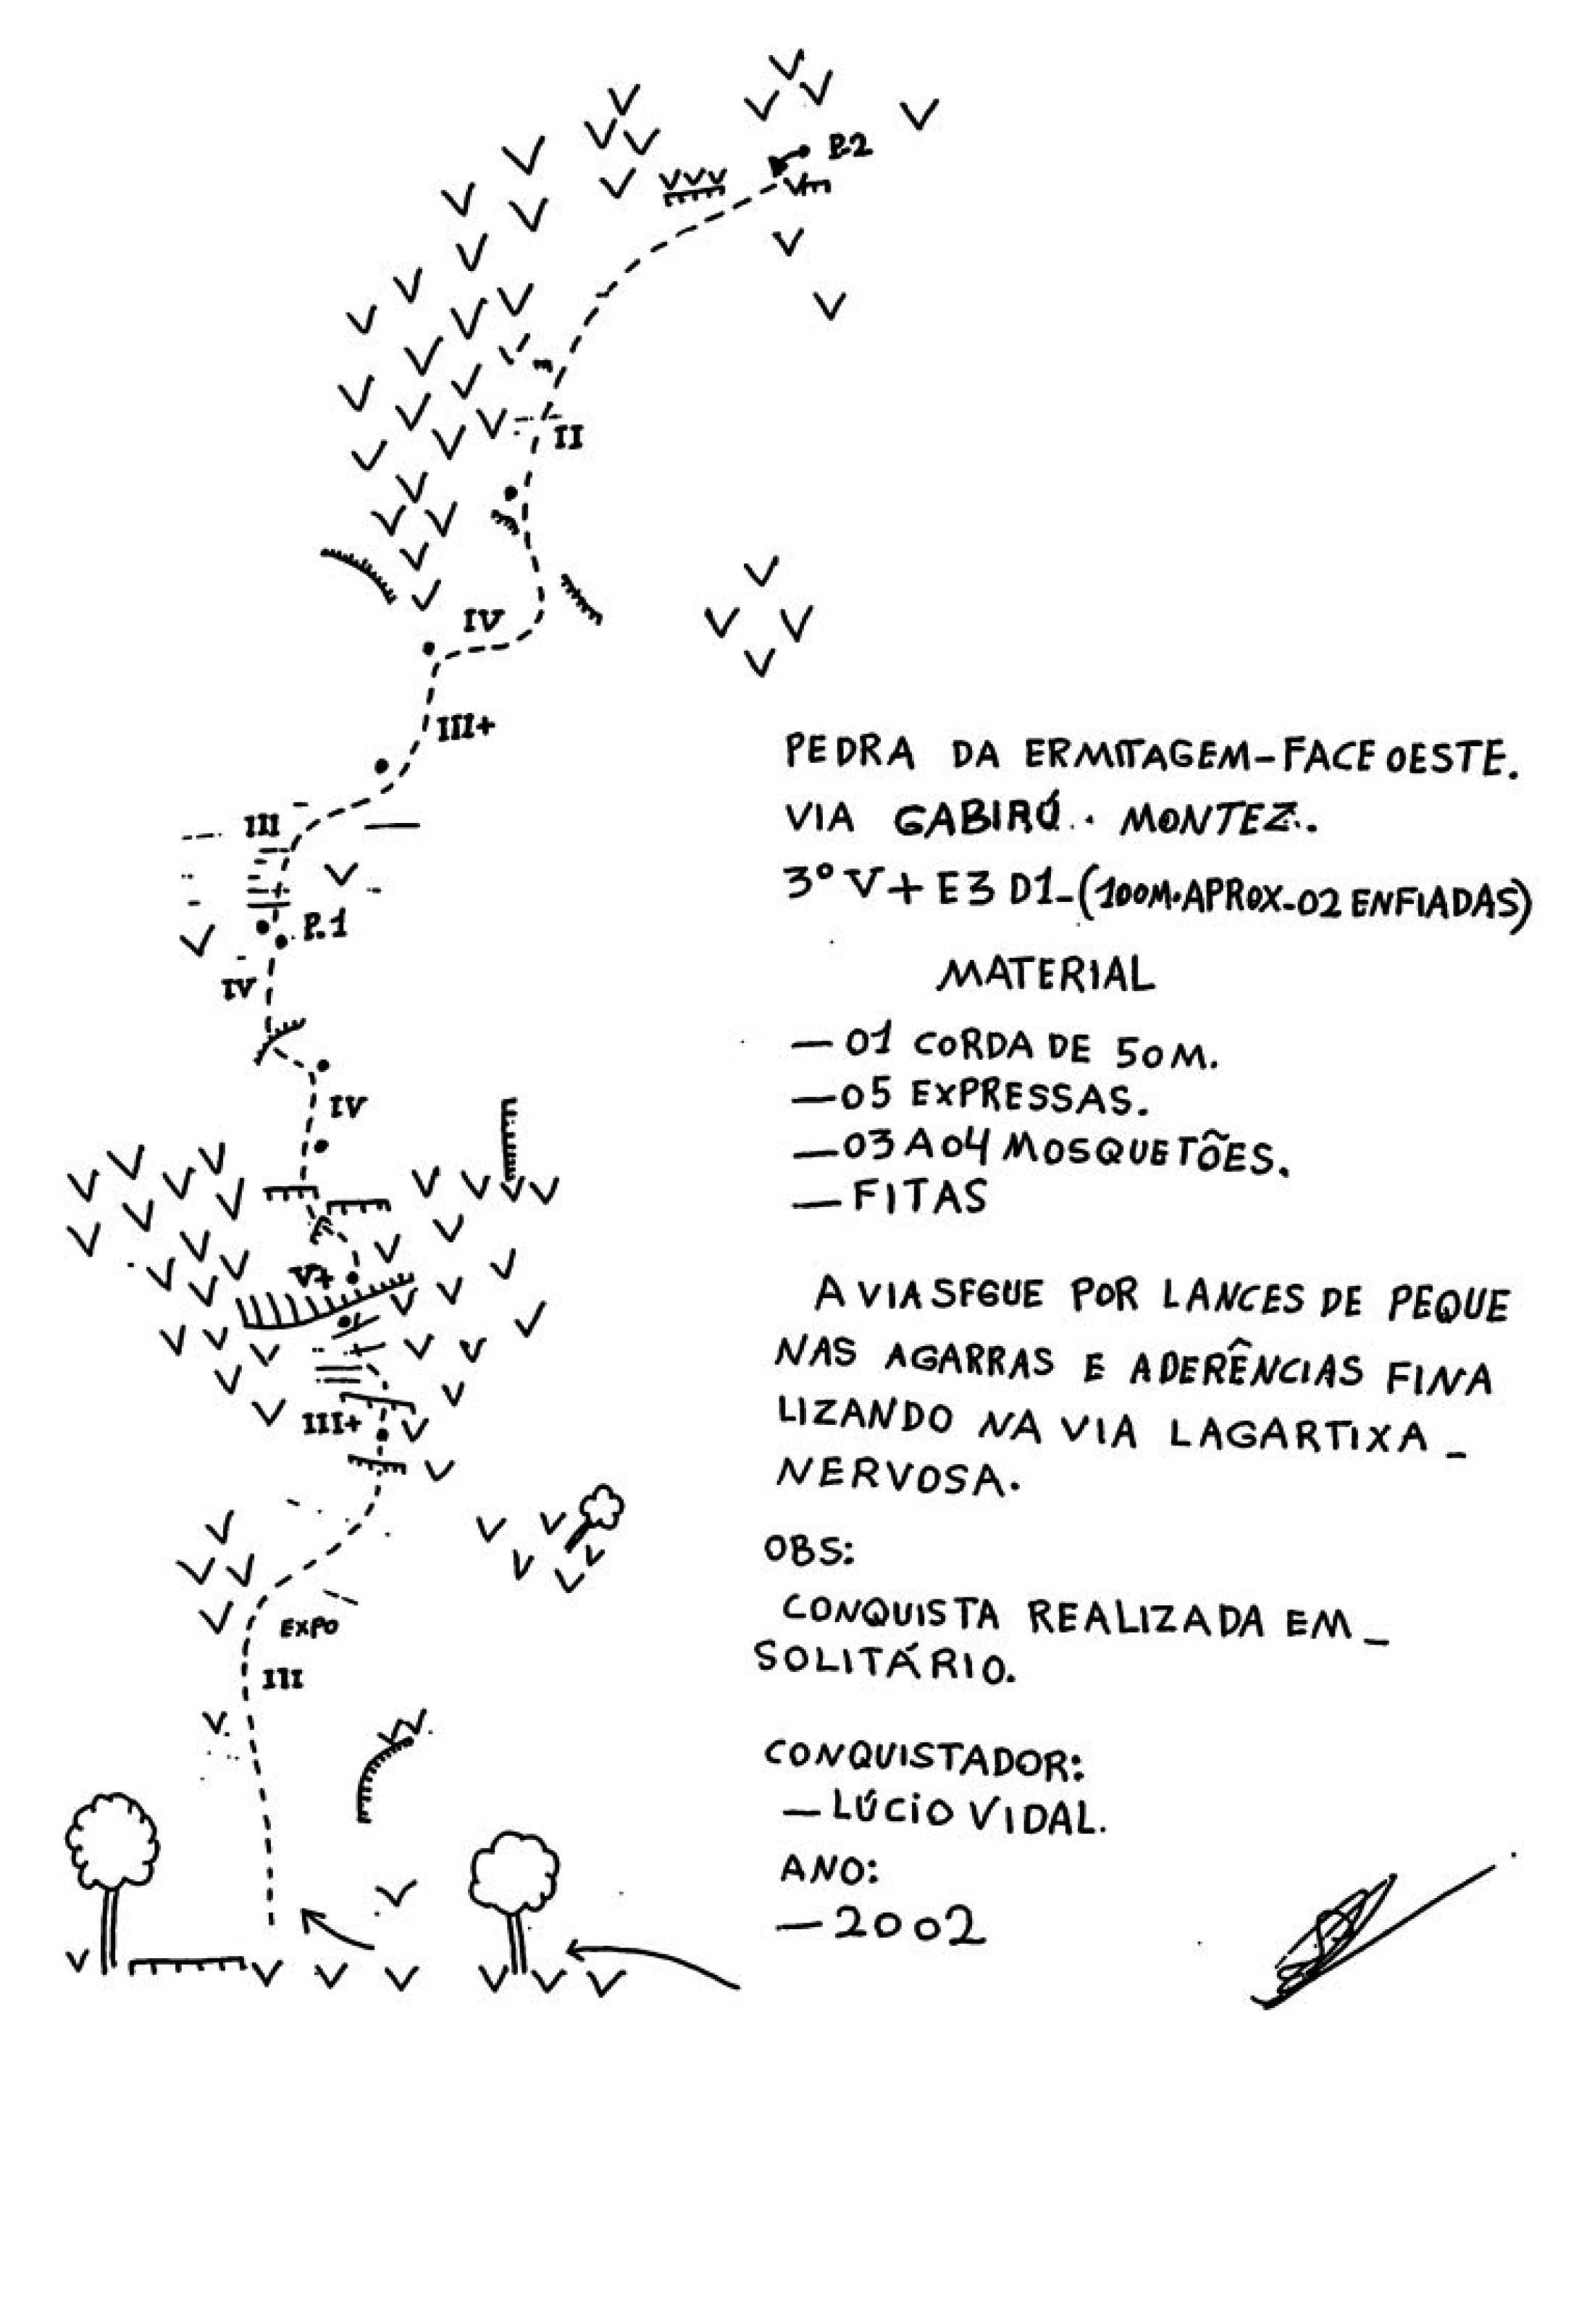 P.2
II
IV
III+
III
P.1
IV
IV
V+
III+
EXPO
III
PEDRA DA ERMITAGEM-FACE OESTE.
VIA GABIRÓ.. MONTEZ..
3° V+ E3 D1-(100M.APROX-02 ENFIADAS)
MATERIAL
— 01 CORDA DE 50M.
—05 EXPRESSAS.
—03 A 04 MOSQUETÕES.
— FITAS
A VIA SEGUE POR LANCES DE PEQUE
NAS AGARRAS E ADERÊNCIAS FINA
LIZANDO NA VIA LAGARTIXA _
NERVOSA.
OBS:
CONQUISTA REALIZADA EM _
SOLITÁRIO.
CONQUISTADOR:
— LÚCIO VIDAL.
ANO:
— 2002